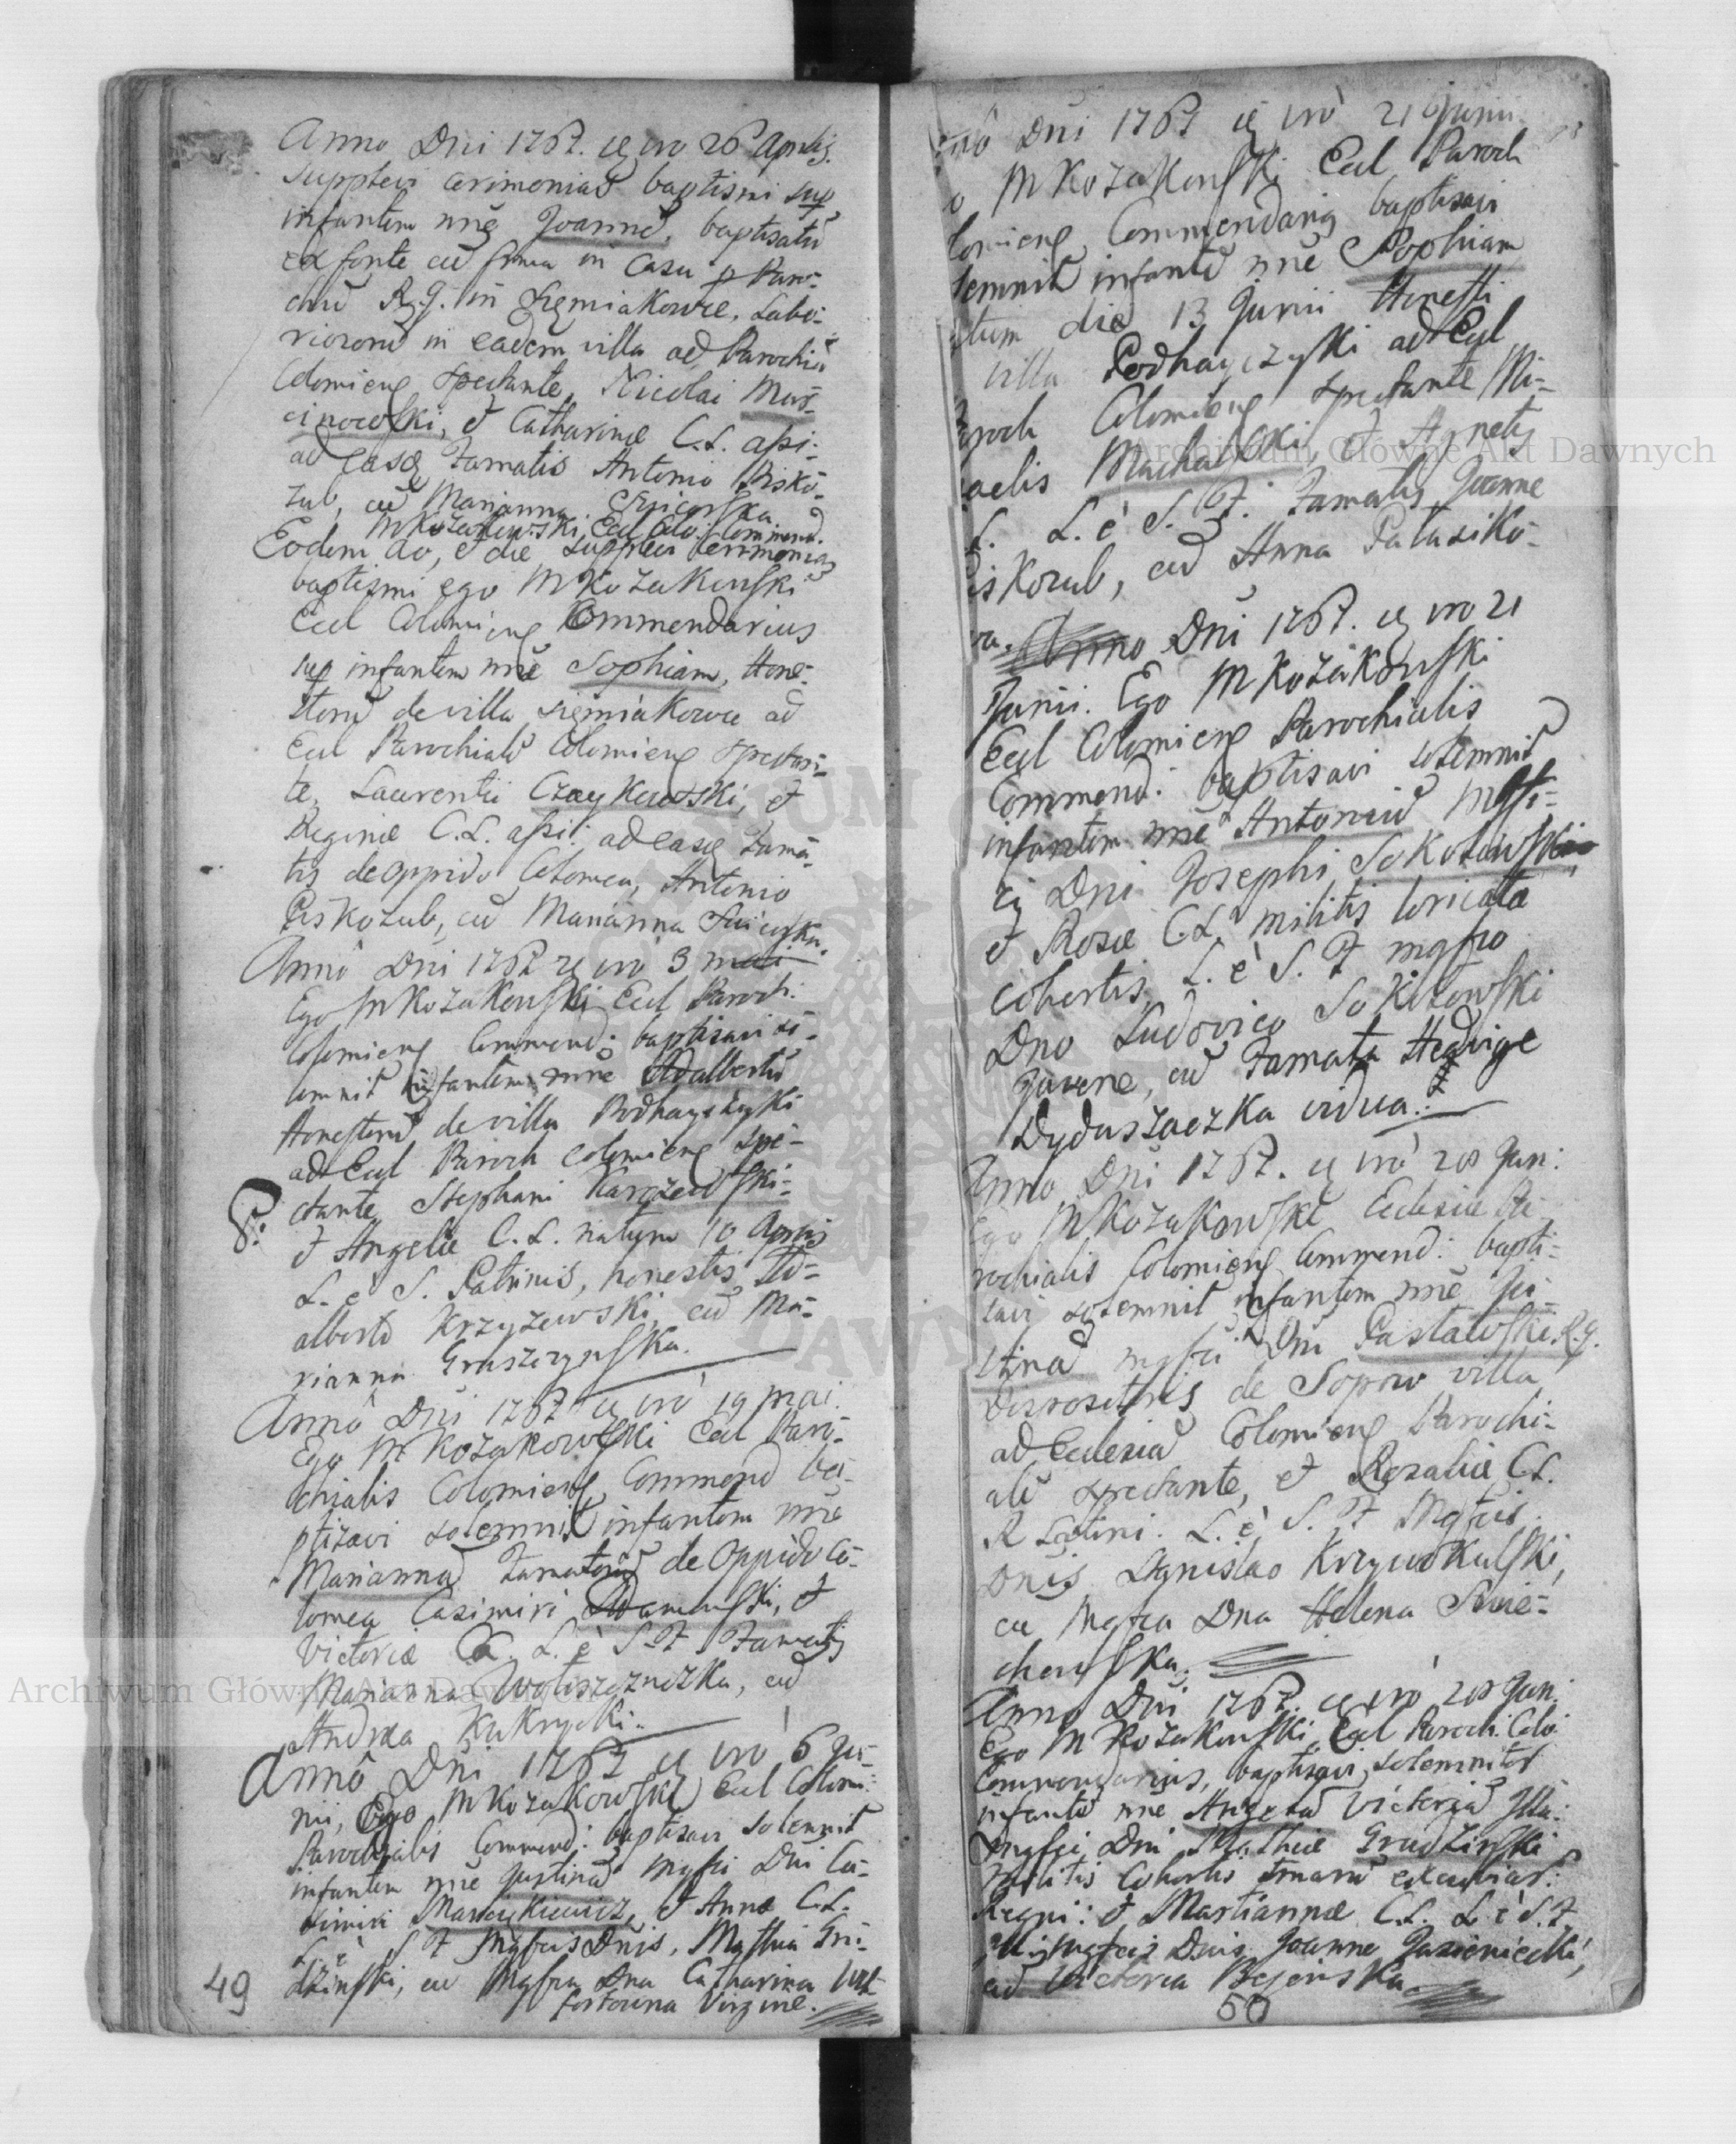 Anno Dni 1767. ię vró 26 Aprilis.
Supplevi cerimonias baptismi sup
infantem nnẽ Joannẽ, baptisatũ
ex fonte cũ in Casu p Paro-
chũ R.G. in Siemiakowce, Labo-
riosorũ in eadem villa ad Parochiã
Colomiens spectante, Nicolai Mar-
cinowski, et Catharinæ C.L. assi-
ad Famatis Antonio Pisko-
zub, cũ Marianna
M Kozakowski Eccl Colo: Commend.
Eodem Ao, et die supplevi Cerimonias
baptismi ego M Kozakowski
Eccl Colomiens Commendarius
sup infantem nnẽ Sophiam, Hone-
storũ de villa Siemiakowce ad
Eccl Parochialẽ Colomiens spectan-
te, Laurentii Czaykowski, et
Reginæ C.L. assi: ad Fama-
tis de oppido Colomea, Antonio
Piskozub, cũ Marianna
Annô Dni 1767 ię vró 3 mai
Ego M Kozakowski Eccl Paroch:
Colomiens Commend: baptisavi so-
lemnit infantem nnẽ Adalbertũ
Honestorũ de villa Podhayczyki
ad Eccl Paroch Colomiens spe-
ctante Stephani Karczewski
et Angelæ C.L. natum 10 Aprilis
L. è S. Patrinis, honestis Ad-
alberto Krzyzewski, cũ Ma-
rianna Gruszczynska.
Annô Dni 1767 ię vró 19 mai.
Ego M Kozakowski Eccl Paro-
chialis Colomiens, Commend ba-
ptizavi solemnit infantem nnẽ
Mariannã Famatorũ de Oppido Co-
lomea Casimiri Adamowski, et
Victoriæ C. L. è S. F. Famatis
Marianna Woloszczuczka, cũ
Andrea Kukrycki.
Annô Dni 1767 ię vró 6 Ju-
nii, Ego M Kozakowski Eccl Colomi:
Parochialis Commend: baptisavi solemnit
infantem nnẽ Justinã Mgfci Dni Ca-
simiri Marcykiewicz, et Annæ C.L.
L. è S F Mgfcis Dnis, Mathia Gru-
dzinski, cũ Mgfca Dna Catharina
Virgine.
49
Dni 1767 ię vró 21 Junii
M Kozakowski Eccl Paroch
lomiens Commendariis baptisavi
lemnit infantẽ nnẽ Sophiam
tum die 13 Junii Honesti
villa Podhayczyki ad Eccl
Paroch Colomiens spectante Mi-
chaelis Machalski, et Agnetis
C. L. è S. F. Famatis Joanne
Piskozub, cũ Anna Palasiko-
wa. Anno Dni 1767. ię vró 21
Junii. Ego M Kozakowski
Eccl Colomiens Parochialis
Commend: baptisavi solemnit
infantem nnẽ Antoniũ Mgfi-
ci Dni Josephi Sokolowski
et Rosæ C.L. militis loricatæ
cohortis, L. è S. F mgfco
Dno Ludovico Sokolowski
Juvene, cũ Famata Hedvige
Dyduszaczka vidua.
Anno Dni 1767. ię vró 28 Jun:
Ego M Kozakowski Ecclesiæ Pa-
rochialis Colomiens Commend: bapti-
savi solemnit infantem nnẽ Ju-
stinã mgfci Dni Pastawski R.G.
Disposetoris de Sopow villa
ad Ecclesiã Colomiens Parochi-
alẽ spectante, et Rozaliæ C.L.
R Latini. L. è S. F Mgfcis
Dnis Stanislao Krzywokulski,
cũ Mgfca Dna Helena
Anno Dni 1767 ię vró 28 Jun:
Ego M Kozakowski, Eccl Paroch: Colo:
Commendarius, baptisavi solemnitèr
infantẽ nnẽ Angelã Victoriã Illũ:
Mgfci Dni Mathiæ Grudzinski
Militis Cohortis excubiar:
Regni: et Martiannæ C.L. L è S. F.
Mgfcis Dnis Joanne Jasieniecki,
cũ Victoria Bejerska.
50
Archiwum Główne Akt Dawnych
Archiwum Główne Akt Dawnych